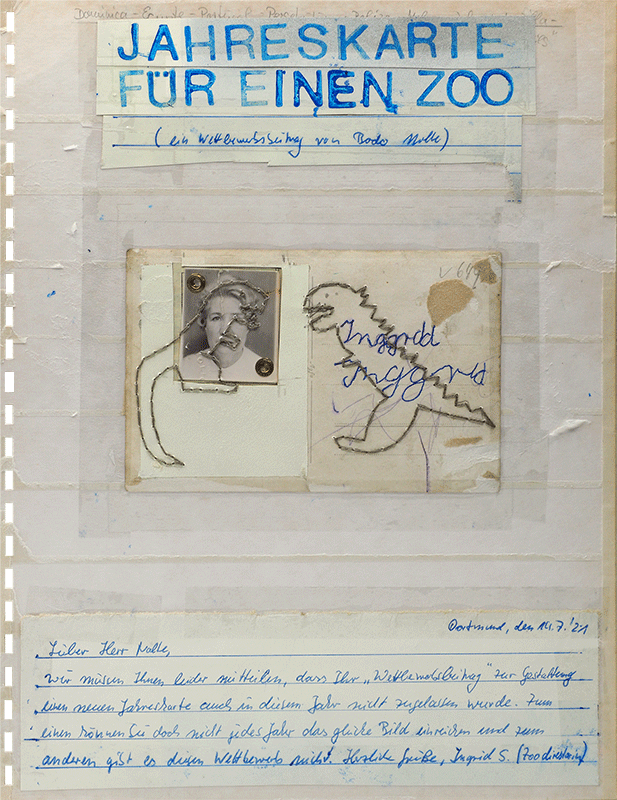 JAHRESKARTE
FÜR EINEN ZOO
(ein Wettbewerbsbeitrag von Bodo Nolte)
Inggrid
Inggrid
Dortmund, den 14.7.'21
Lieber Herr Nolte,
wir müssen Ihnen leider mitteilen, dass Ihr „Wettbewerbsbeitrag" zur Gestaltung
einer neuen Jahreskarte auch in diesem Jahr nicht zugelassen wurde. Zum
einen können Sie doch nicht jedes Jahr das gleiche Bild einreichen und zum
anderen gibt es diesen Wettbewerb nicht. Herzliche Grüße, Ingrid S. (Zoodirektorin)